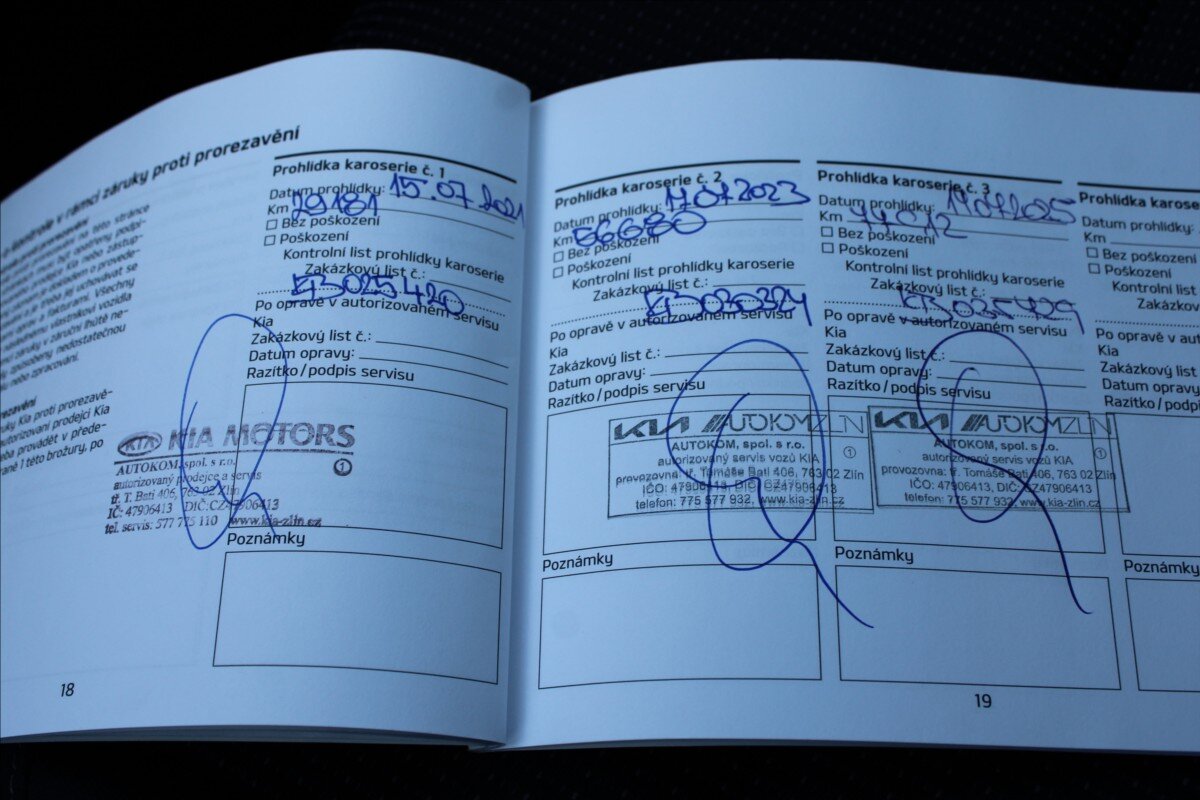 kontrole v rámci záruky proti prorezavění
prorezavění
na této stránce
musí být opatřeny podpi-
prodejce Kia nebo zástup-
servisu a je dokladem o provede-
ní je třeba jej uchovávat se
a fakturami. Všechny
následnému vlastníkovi vozidla
v záruční lhůtě ne-
způsobeny nedostatečnou
nebo zpracování.
prorezavění
záruky Kia proti prorezavě-
autorizovaní prodejci Kia
třeba provádět v přede-
straně 1 této brožury, po
18
Prohlídka karoserie č. 1
Datum prohlídky: 15.07.2021
Km 29181
Bez poškození
Poškození
Kontrolní list prohlídky karoserie
Zakázkový list č.:
KB025420
Po opravě v autorizovaném servisu
Kia
Zakázkový list č.:
Datum opravy:
Razítko / podpis servisu
KIA KIA MOTORS
AUTOKOM, spol. s r.o.
autorizovaný prodejce a servis
1
tř. T. Bati 406, 763 02 Zlín
IČ: 47906413 DIČ:CZ47906413
tel. servis: 577 775 110 www.kia-zlin.cz
Poznámky
Prohlídka karoserie č. 2
Datum prohlídky: 17.07.2023
Km 66680
Bez poškození
Poškození
Kontrolní list prohlídky karoserie
Zakázkový list č.:
Po opravě v autorizovaném servisu
Kia
Zakázkový list č.:
Datum opravy:
Razítko / podpis servisu
KIA AUTOKOMZLIN
AUTOKOM, spol. s r.o.
autorizovaný servis vozů KIA
1
provozovna: tř. Tomáše Bati 406, 763 02 Zlín
IČO: 47906413, DIČ: CZ47906413
telefon: 775 577 932, www.kia-zlin.cz
Poznámky
Prohlídka karoserie č. 3
Datum prohlídky:
Km
Bez poškození
Poškození
Kontrolní list prohlídky karoserie
Zakázkový list č.:
KB035429
Po opravě v autorizovaném servisu
Kia
Zakázkový list č.:
Datum opravy:
Razítko / podpis servisu
KIA AUTOKOMZLIN
AUTOKOM, spol. s r.o.
autorizovaný servis vozů KIA
1
provozovna: tř. Tomáše Bati 406, 763 02 Zlín
IČO: 47906413, DIČ: CZ47906413
telefon: 775 577 932, www.kia-zlin.cz
Poznámky
19
Prohlídka karose
Datum prohlídky:
Km
Bez poškození
Poškození
Kontrolní list
Zakázko
Po opravě v aut
Kia
Zakázkový list
Datum opravy
Razítko / podp
Poznámky